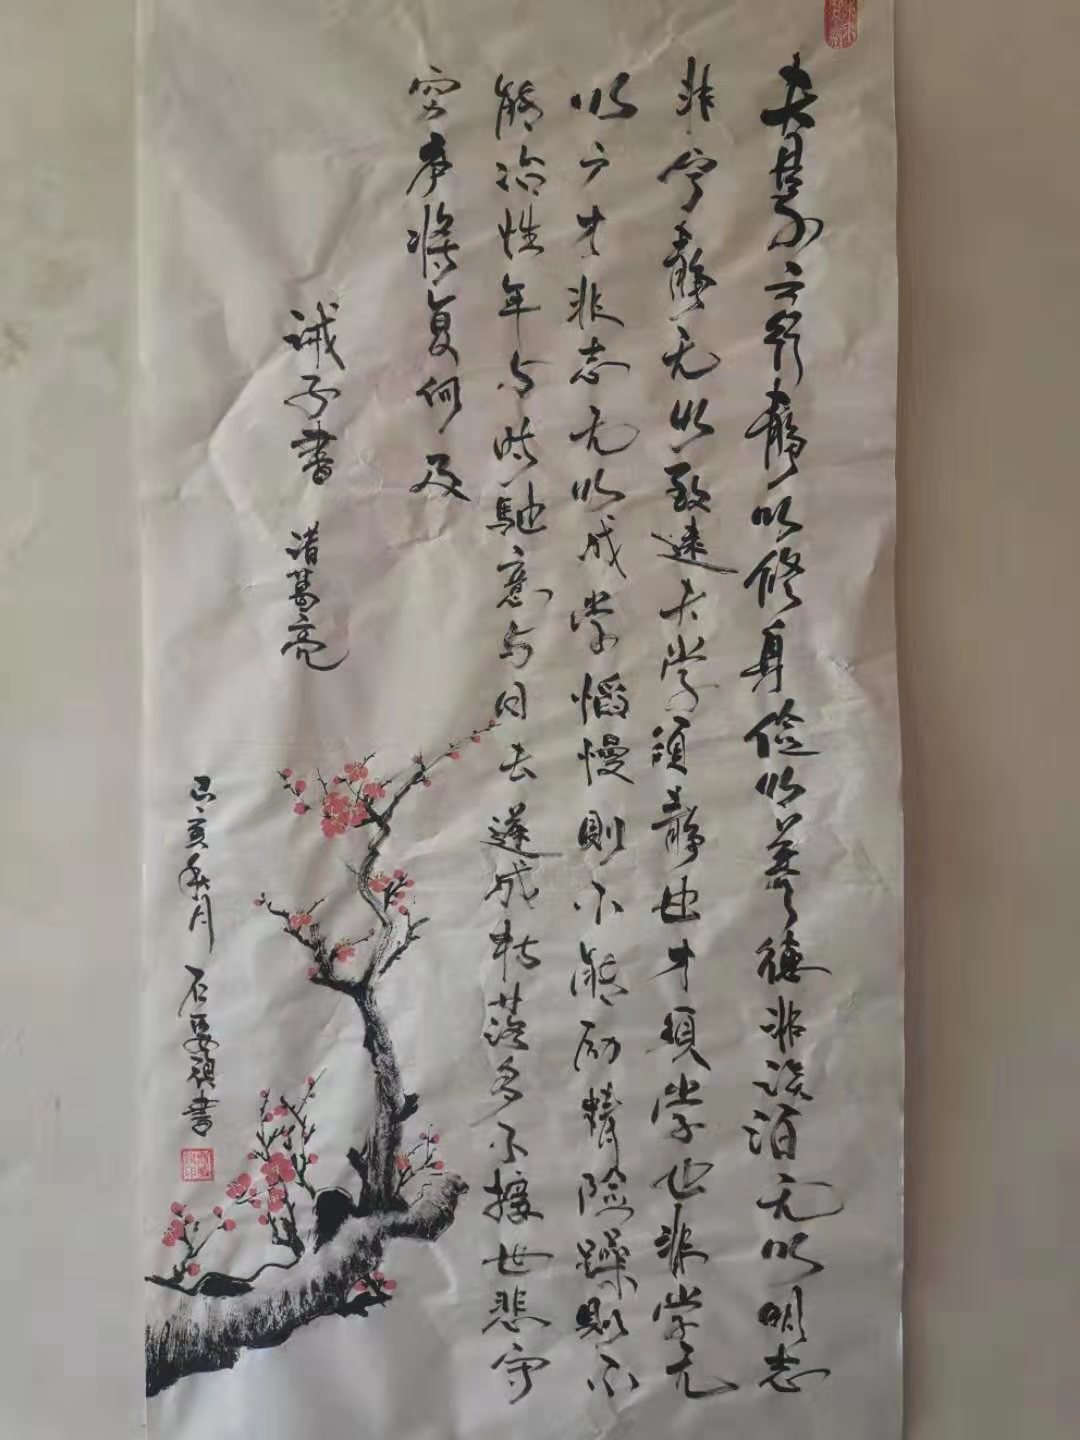 夫君子之行静以修身俭以养德非淡泊无以明志
非宁静无以致远夫学须静也才须学也非学无
以广才非志无以成学慆慢则不能励精险躁则不
能冶性年与时驰意与日去遂成枯落多不接世悲守
穷庐将复何及
诫子书 诸葛亮
己亥秋月 石 书